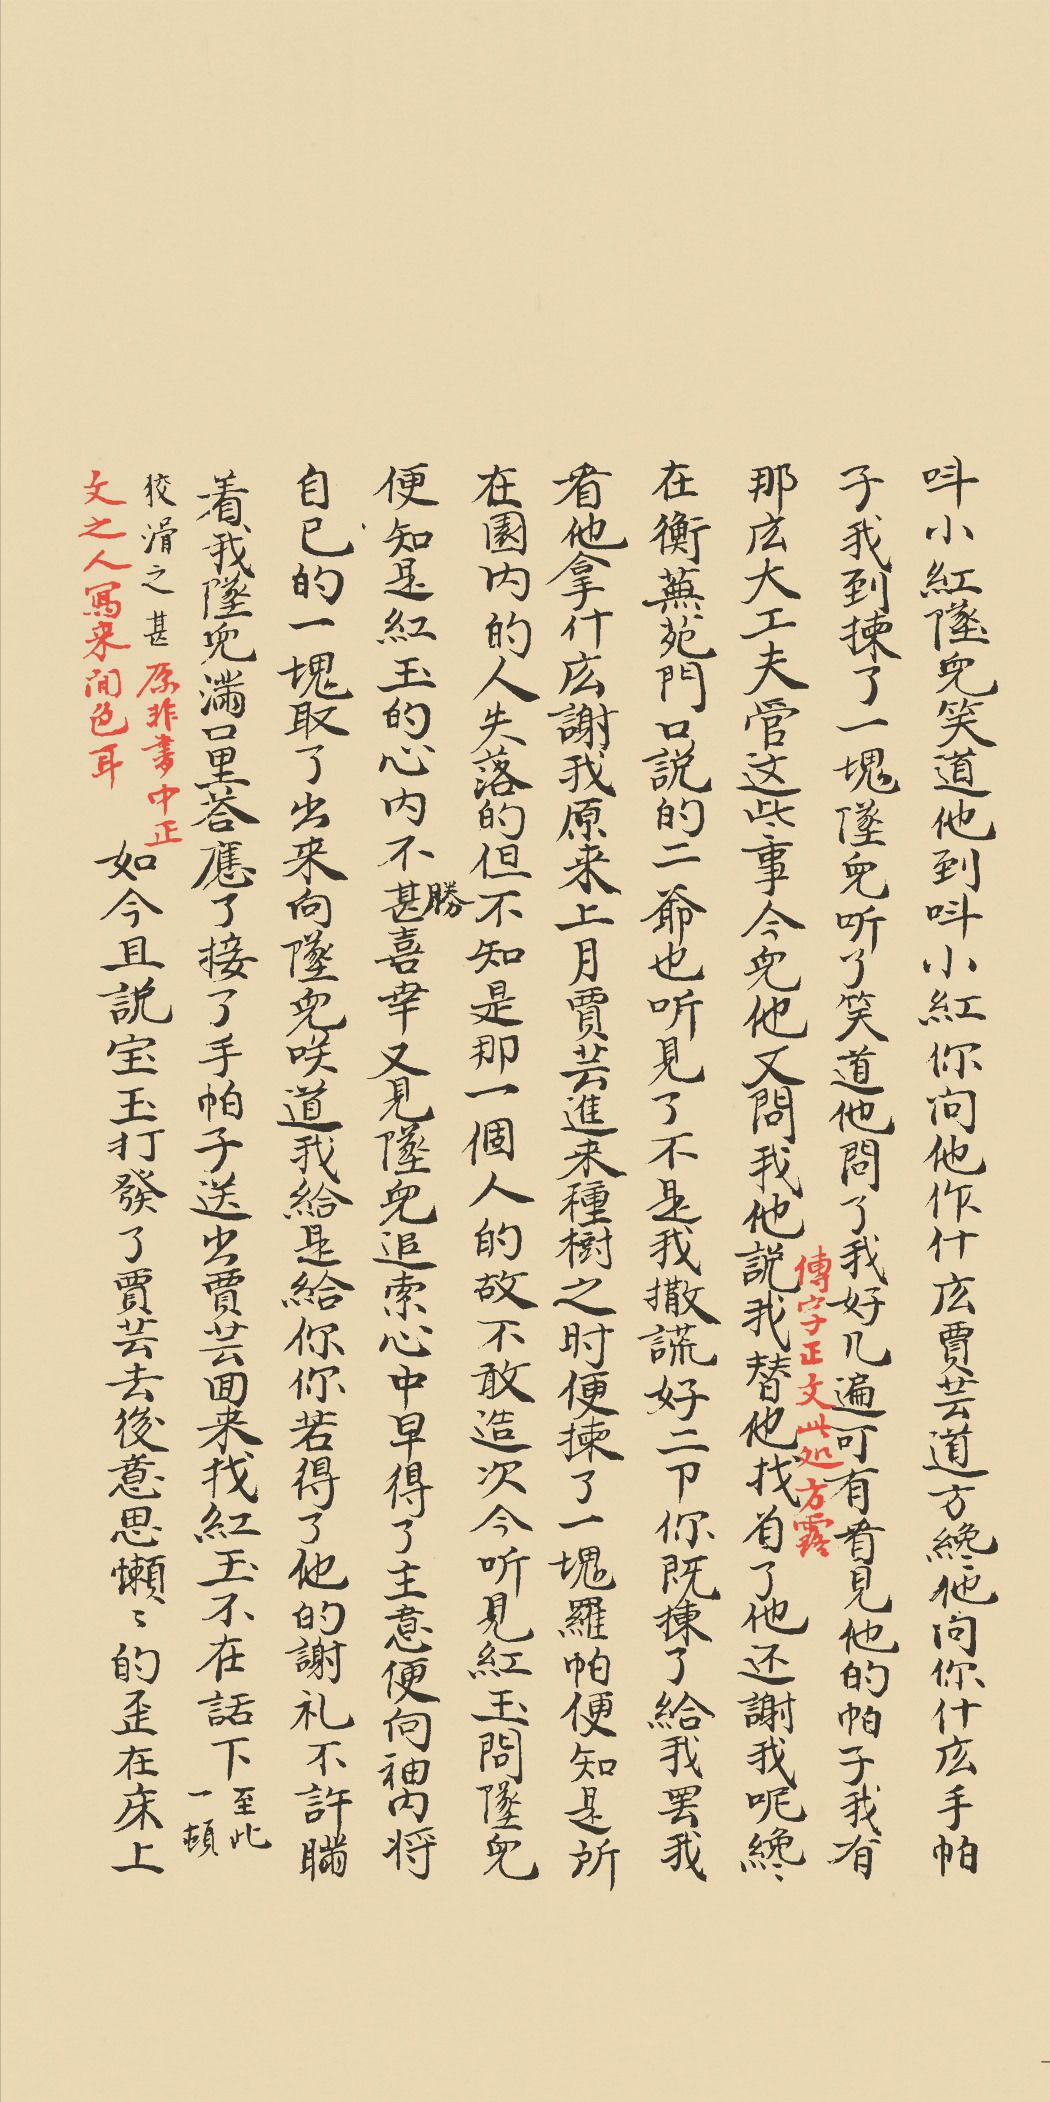 呌小紅墜児笑道他到呌小紅你问他作什庅賈芸道方纔他问你什庅手帕
子我到揀了一塊墜児听了笑道他問了我好几遍可有看見他的帕子我有
那庅大工夫管这些事今児他又問我他説我替他找着了他还謝我呢纔
傳字正文此処方露
在蘅蕪苑門口説的二爺也听見了不是我撒謊好二爷你既揀了給我罢我
看他拿什庅謝我原来上月賈芸進来種樹之时便揀了一塊羅帕便知是所
在園内的人失落的但不知是那一個人的故不敢造次今听見紅玉問墜児
便知是紅玉的心内不甚勝喜幸又見墜児追索心中早得了主意便向袖内将
自已的一塊取了出来向墜児咲道我給是給你你若得了他的謝礼不許瞞
着我墜児滿口里荅應了接了手帕子送出賈芸回来找紅玉不在話下至此
一頓
狡滑之甚原非書中正
文之人寫来间色耳
如今且説宝玉打發了賈芸去後意思懶〻的歪在床上